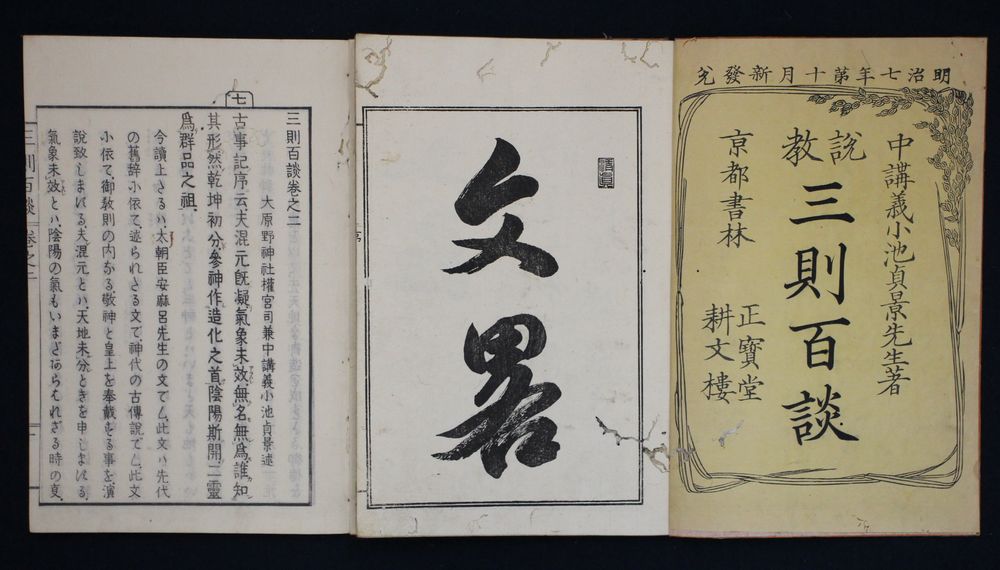 明治七年第十月新發兌
中講義小池貞景先生著
説教
三則百談
京都書林
正寶堂
耕文樓
文畧
三則百談卷之二
大原野神社權宮司兼中講義小池貞景述
七
古事記序云、夫混元既凝氣象未效無名無爲誰知
其形然乾坤初分參神作造化之首陰陽斯開二靈
爲群品之祖
今讀上さるハ太朝臣安麻呂先生の文で
此文ハ先代
の舊辭小依て述られさる文で神代の古傳説で
此文
小依て御教則の内なる敬神と皇上を奉戴
る事を演
説致しまける夫混元とハ天地未分ときを申しまける
氣象未效とハ陰陽の氣もいまだあらハれざる時の
三則百談
卷之二